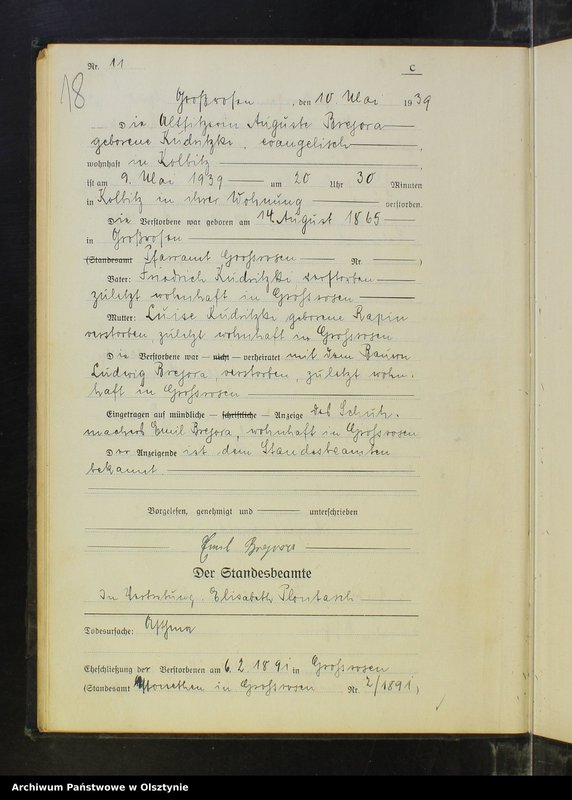 Nr. 11
C
18
Großrosen, den 10 Mai 1939
Die Altsitzerin Auguste Bregora
geborene Kudritzki, evangelisch,
wohnhaft in Kolbitz
ist am 9. Mai 1939 um 20 Uhr 30 Minuten
in Kolbitz in ihrer Wohnung verstorben.
Die Verstorbene war geboren am 14. August 1865
in Großrosen
(Standesamt Pfarramt Grossrosen Nr. )
Vater: Friedrich Kudritzki verstorben
zuletzt wohnhaft in Grossrosen
Mutter: Luise Kudritzki geborene Rapin
verstorben, zuletzt wohnhaft in Grossrosen
Die Verstorbene war — nicht — verheiratet mit dem Bauern
Ludwig Bregora, verstorben, zuletzt wohn-
haft in Grossrosen
Eingetragen auf mündliche — schriftliche — Anzeige des Schuh-
machers Emil Bregora, wohnhaft in Grossrosen
Der Anzeigende ist dem Standesbeamten
bekannt.
Vorgelesen, genehmigt und unterschrieben
Emil Bregora
Der Standesbeamte
In Vertretung. Elisabeth
Todesursache: Asthma
Eheschließung der Verstorbenen am 6. 2. 1891 in Grossrosen
(Standesamt in Grossrosen Nr. 2/1891)
Archiwum Państwowe w Olsztynie